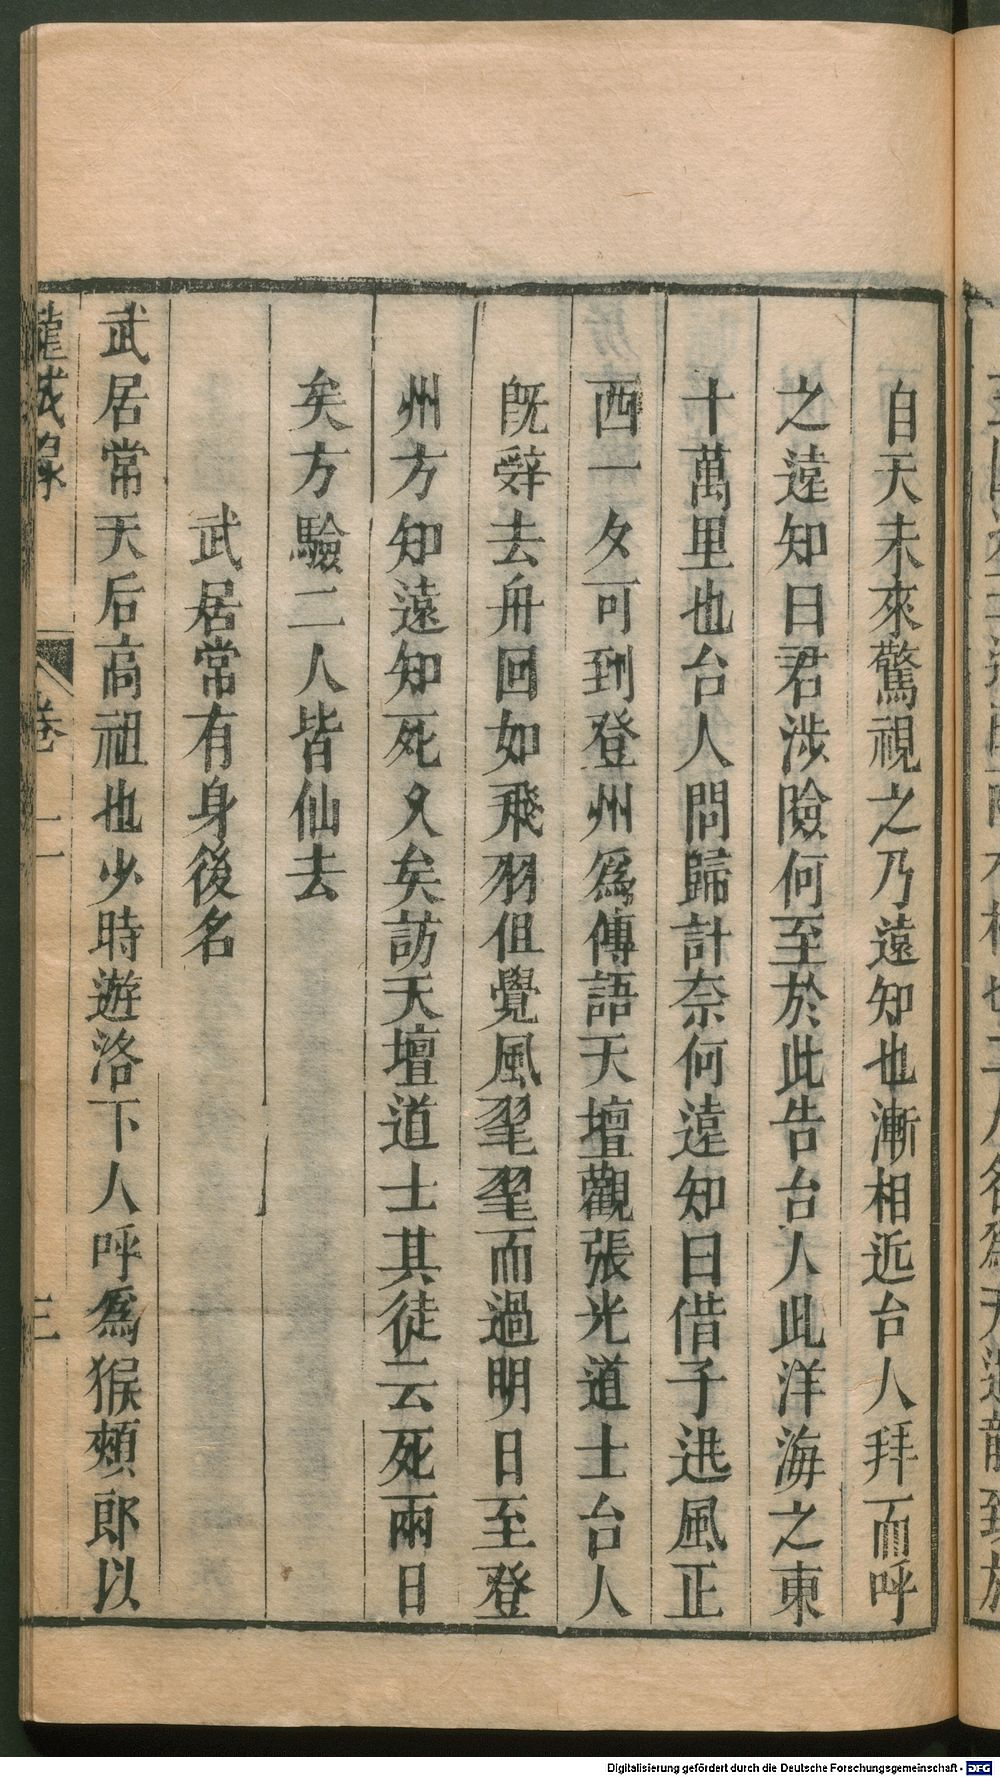 自天未來驚視之乃遠知也漸相近台人拜而呼
之遠知曰君涉險何至於此告台人此洋海之東
十萬里也台人問歸計奈何遠知曰借子迅風正
西一夕可到登州爲傳語天壇觀張光道士台人
旣辭去舟回如飛羽但覺風翣翣而過明日至登
州方知遠知死久矣訪天壇道士其徒云死兩日
矣方驗二人皆仙去
武居常有身後名
武居常天后高祖也少時遊洛下人呼爲猴頰郎以
龍城錄 卷二 三
Digitalisierung gefördert durch die Deutsche Forschungsgemeinschaft - DFG